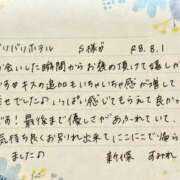 バリバリホテル S様♂ R8.8.1
お会いした瞬間からお褒め頂けて嬉しい
です♡キスの追加もいちゃいちゃ感が増して
幸せでした♡いっぱい感じてもらえて良かった
です！最後まで優しさがあふれていて、
気持ち良くお見送り出来てにこにこで帰ら
れました♫
新條 すみれ